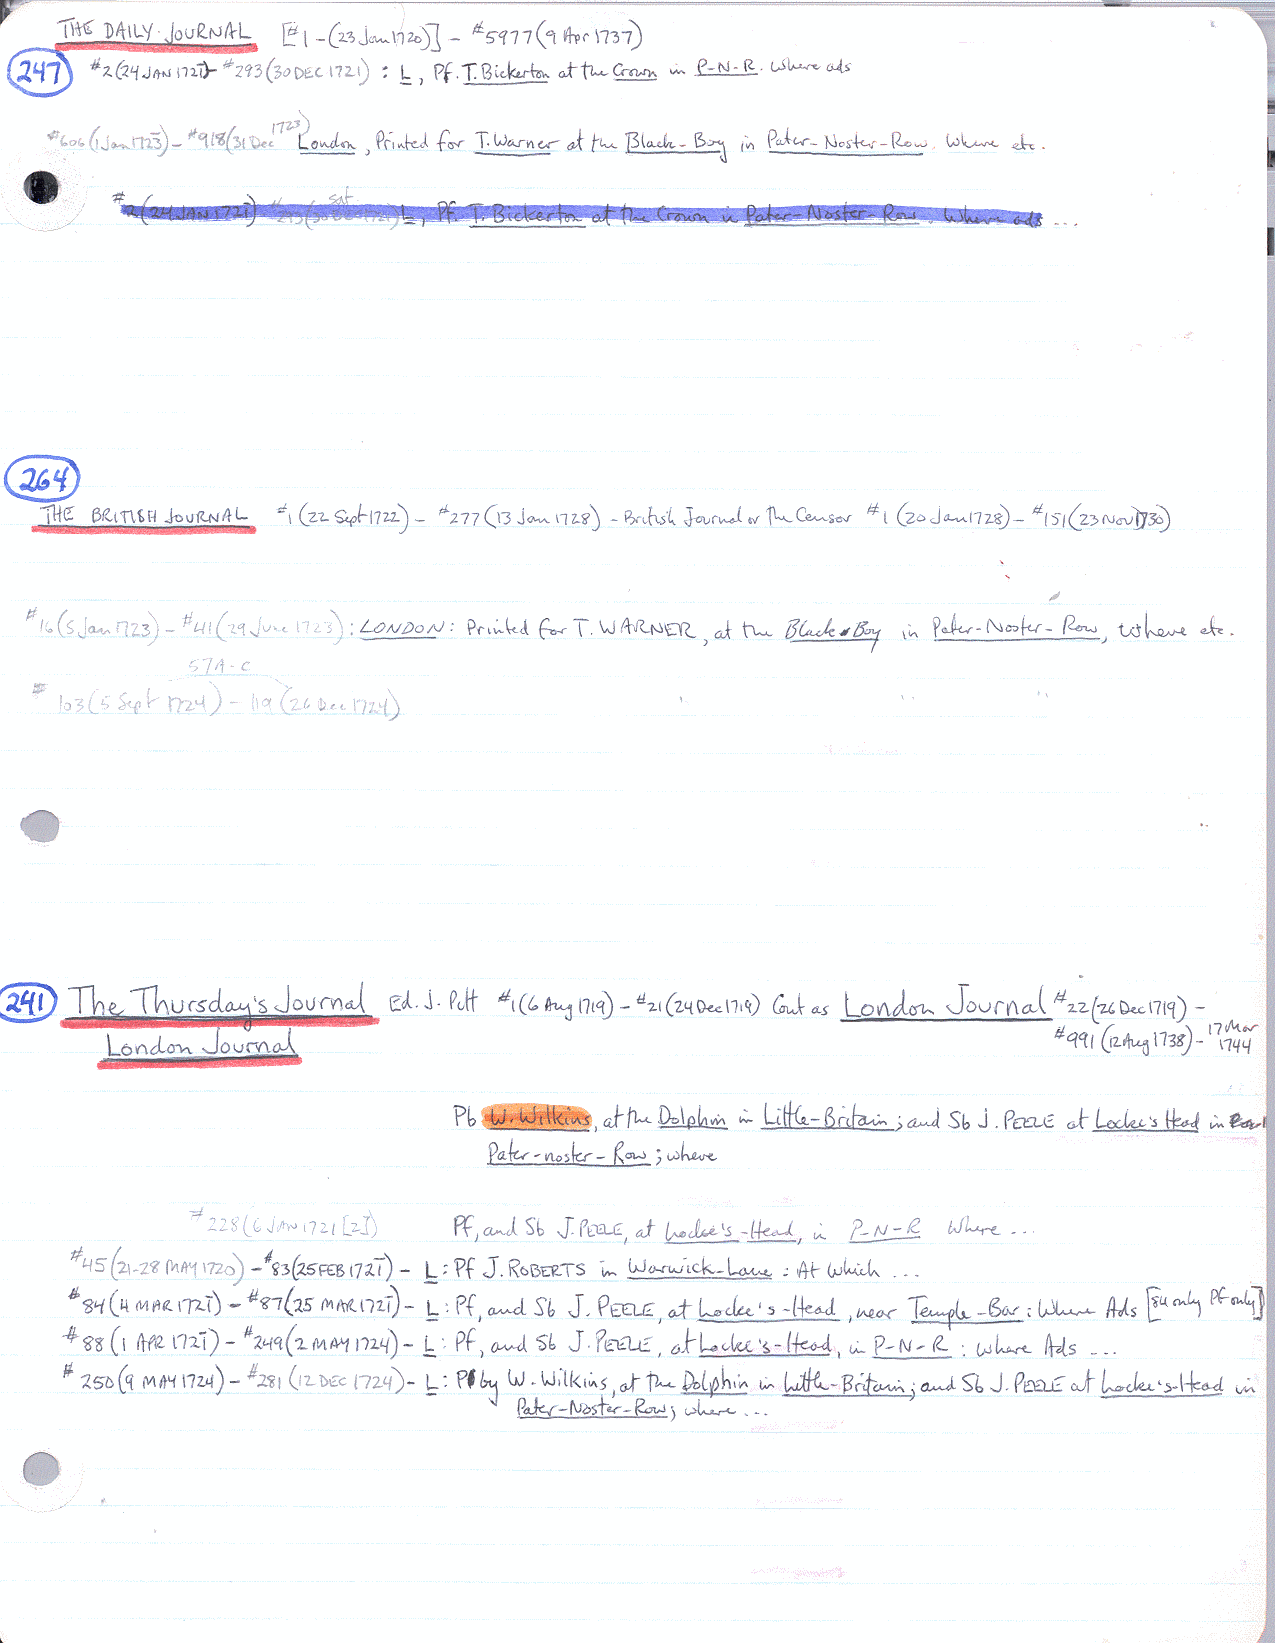 THE DAILY JOURNAL [#1 - (23 Jan 1720)] - #5977 (9 Apr 1737)
247 #2 (24 JAN 1721̅) - #293 (30 DEC 1721) : L, Pf. T. Bickerton at the Crown in P-N-R. Where ads
1723)
#606 (1 Jan 1723̅) - #918 (31 Dec London, Printed for T. Warner at the Black-Boy in Pater-Noster-Row. Where etc.
sat
#2 (24 JAN 1721̅) #293 (30 Dec 1721) L, Pf. T. Bickerton at the Crown in Pater-Noster-Row. Where ads ...
264
THE BRITISH JOURNAL #1 (22 Sept 1722) - #277 (13 Jan 1728) - British Journal or The Censor #1 (20 Jan 1728) - #151 (23 Nov 1730)
#16 (5 Jan 1723) - #41 (29 June 1723) : LONDON: Printed for T. WARNER, at the Black-Boy in Pater-Noster-Row, where etc.
57A-C
# 103 (5 Sept 1724) - 119 (26 Dec 1724) " " "
241 The Thursday's Journal Ed. J. Pitt #1 (6 Aug 1719) - #21 (24 Dec 1719) Cont as London Journal #22 (26 Dec 1719) -
London Journal #991 (12 Aug 1738) - 17 Mar 1744
Pb W. Wilkins, at the Dolphin in Little-Britain; and Sb J. PEELE at Locke's Head in
Pater-noster-Row; where
#228 (6 JAN 1721 [2]) Pf, and Sb J. PEELE, at Locke's-Head, in P-N-R Where ...
#45 (21-28 MAY 1720) - #83 (25 FEB 1721̅) - L: Pf J. ROBERTS in Warwick-Lane : At which ...
#84 (4 MAR 1721̅) - #87 (25 MAR 1721̅) - L: Pf, and Sb J. PEELE, at Locke's-Head, near Temple-Bar: Where Ads [84 only Pf only]
#88 (1 APR 1721̅) - #249 (2 MAY 1724) - L: Pf, and Sb J. PEELE, at Locke's-Head, in P-N-R : where Ads ...
#250 (9 MAY 1724) - #281 (12 DEC 1724) - L: P by W. Wilkins, at the Dolphin in Little-Britain; and Sb J. PEELE at Locke's-Head in
Pater-Noster-Row; where ...